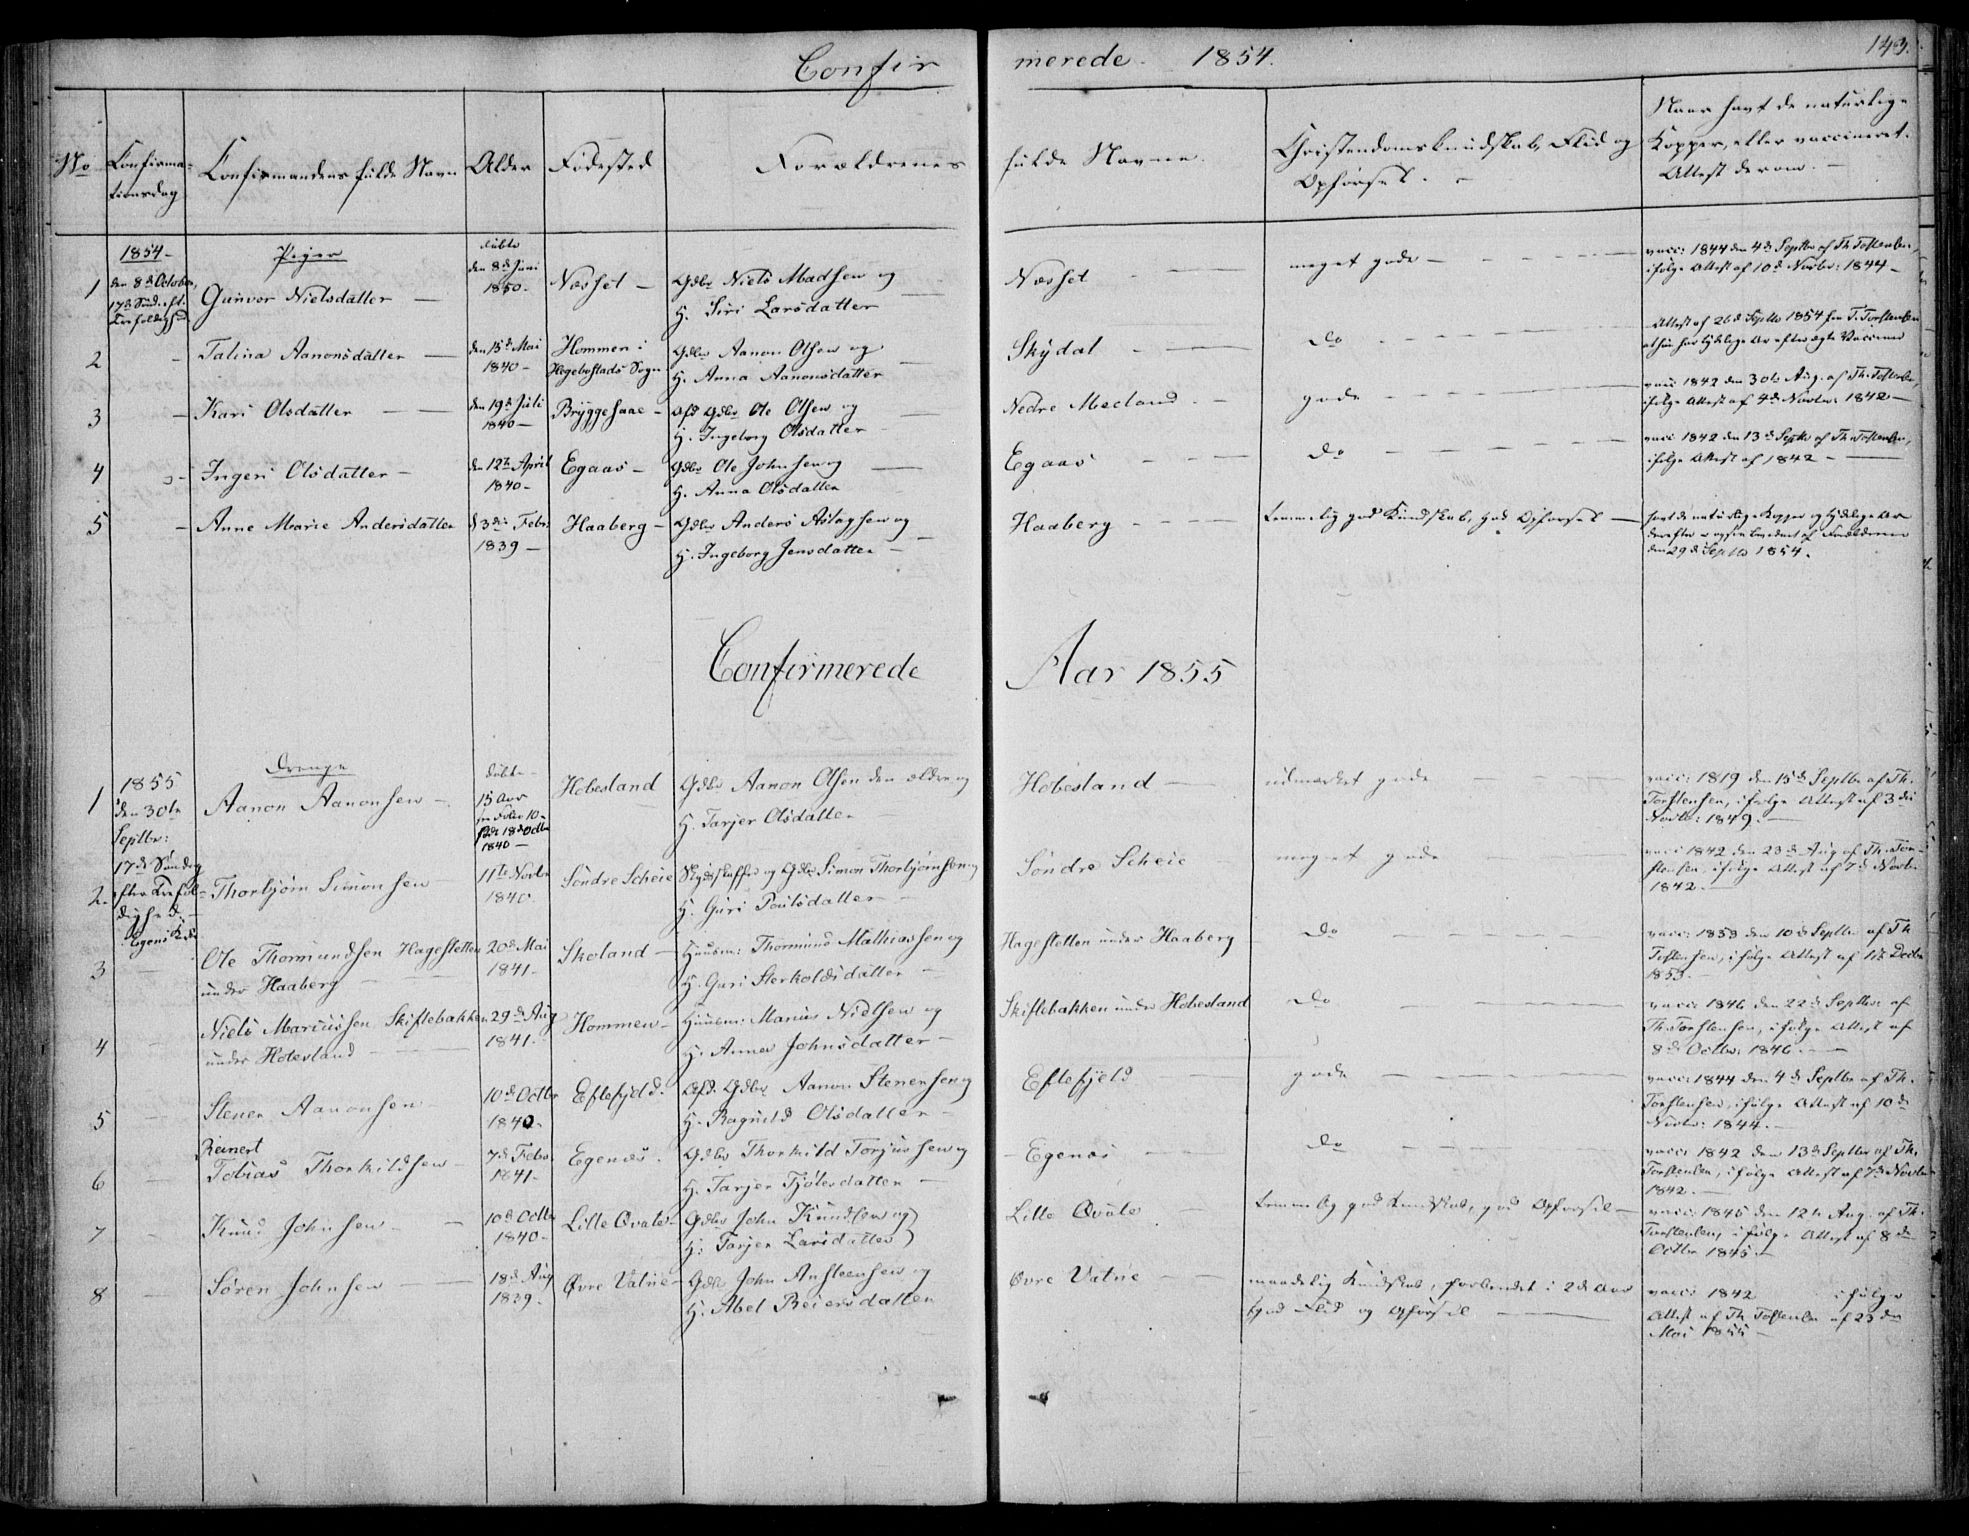 Confirmerede 1854.
143.
No
Confirmationsdag
Confirmandens fulde Navn
Alder
Fødested
Forældrenes fulde Navne.
Christendomskundskab, Flid og Opførsel.
Naar havt de naturlige Kopper, eller vaccineret. Attest derom.
1854
Piger
døbte
1 den 8de October, 17de Sønd. eft. Trefoldighed. Gunvor Nielsdatter den 8de Juni 1840. Næsset Gdbr Niels Madsen og H. Siri Larsdatter Næsset meget gode vacc: 1844 den 4de Septbr af Th. Tostensen, ifølge Attest af 10de Novbr: 1844
2 Talina Aanonsdatter den 15de Mai 1840 Hommen i Hegebostads Sogn Gdbr Aanon Olsen og H. Anna Aanonsdatter Skydal Do Attest af 26de Septbr 1854 fra T. Torstensen at hun har tydelige Ar efter ægte Vacciner
3 Kari Olsdatter den 19de Juli 1840 Bryggesaae Afd Gdbr Ole Olsen og H. Ingeborg Olsdatter Nedre Mecland gode vacc 1842 den 30te Aug. af Th. Tostensen, ifølge Attest af 4de Novbr: 1842
4 Ingeri Olsdatter den 12te April 1840 Egaas Gdbr Ole Johnsen og H. Anna Olsdatter Egaas Do vacc 1842 den 13de Septbr af Th. Tostensen, ifølge Attest af 1842
5 Anne Marie Andersdatter d 3die Febr: 1839 Haaberg Gdbr Anders Aslagsen og H. Ingeborg Jensdatter Haaberg temmelig god Kundskab, god Opførsel havt de naturlige Kopper og tydelige Ar derefter af Forældrene den 29de Septbr 1854.
Confirmerede Aar 1855
1855
Drenge
døbte
1 den 30te Septbr: 17de Søndag efter Trefoldighed. Egenæs K. Aanon Aanonsen 15 Aar 18de Octbr 1840 Hobesland Gdbr Aanon Olsen den ældre og H. Tarjer Olsdatter Hobesland udmærket gode vacc: 1849 den 15de Septbr af Th. Torstensen, ifølge Attest af 3die Novbr: 1849.
2. Thorbjørn Simonsen 11te Novbr 1840. Søndre Scheie Skydsskaffer og Gdbr Simon Thorbjørnsen og H. Guri Poulsdatter Søndre Scheie meget gode vacc: 1842 den 23de Aug af Th. Torstensen, ifølge Attest af 7de Novbr 1842.
3 Ole Thormundsen Hagestetten under Haaberg 20de Mai 1841. Skoland Huusm: Thormund Mathiassen og H. Guri Sterkoldsdatter Hagestetten under Haaberg Do vacc: 1853 den 10de Septbr af Th Tostensen, ifølge Attest af 1ste Decbr 1853.
4 Niels Mariussen Skiftebakken under Hobesland 29de Aug 1841. Hommen Huusm: Marius Nielsen og H. Anna Johnsdatter Skiftebakken under Hobesland Do vacc: 1846 den 22de Septbr af Th. Torstensen, ifølge Attest af 8de Octbr: 1846.
5 Stener Aanonsen 10de Octbr 1840. Eftefjeld. Afd. Gdbr Aanon Stenersen og H. Ragnild Olsdatter Eftefjeld gode vacc: 1844 den 4de Septbr af Th. Torstensen, ifølge Attest af 10de Novbr: 1844.
6 Reinert Tobias Thorkildsen 7de Febr. 1841. Egenæs. Gdbr Thorkild Torjussen og H. Tarjer Tjølesdatter Egenæs Do vacc: 1842 den 13de Septbr af Th. Torstensen, ifølge Attest af 7de Novbr 1842.
7 Knud Johnsen 10de Octbr 1840. Lille Qvale Gdbr John Knudsen og H: Tarjer Larsdatter Lille Qvale temmelig god Kundskab, god Opførsel vacc: 1845 den 12te Aug. af Th. Torstensen, ifølge Attest af 8de Octbr 1845.
8 Søren Johnsen 18de Aug 1839. Øvre Vatne Gdbr John Anstensen og H. Abel Reiersdatter Øvre Vatne maadelig Kundskab, forberedt i 2de Aar god Flid og Opførsel vacc: 1842 ifølge Attest af Th. Tostensen af 23de Mai 1855